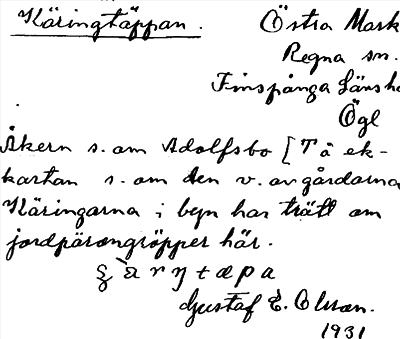 Käringtäppan. Östra Mark
Regna sn.
Finspånga länsh
Ögl
Åkern s. om Adolfsbo [Tå ek-
kartan s. om den v. av gårdarna
Käringarna i byn har trätt om
jordpärongröpper här.
Gustaf E. Olsson.
1931